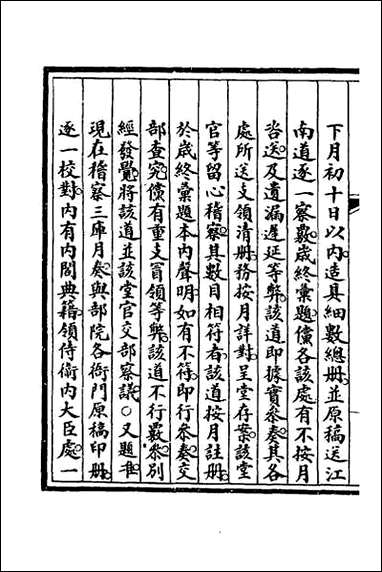 下月初十日以内造具細數總冊並原稿送江
南道逐一察覈歲終彙題儻各該處有不按月
咨送及遺漏遲延等弊該道即據實叅奏其各
處所送支領清冊務按月詳對呈堂存案該堂
官等留心稽察其數目相符者該道按月註冊
於歲終彙題本内聲明如有不符即行叅奏交
部查究儻有重支冒領等弊該道不行覈叅别
經發覺將該道並該堂官交部察議○又題准
現在稽察三庫月奏與部院各衙門原稿印冊
逐一校對内有内閣典籍領侍衛内大臣處一